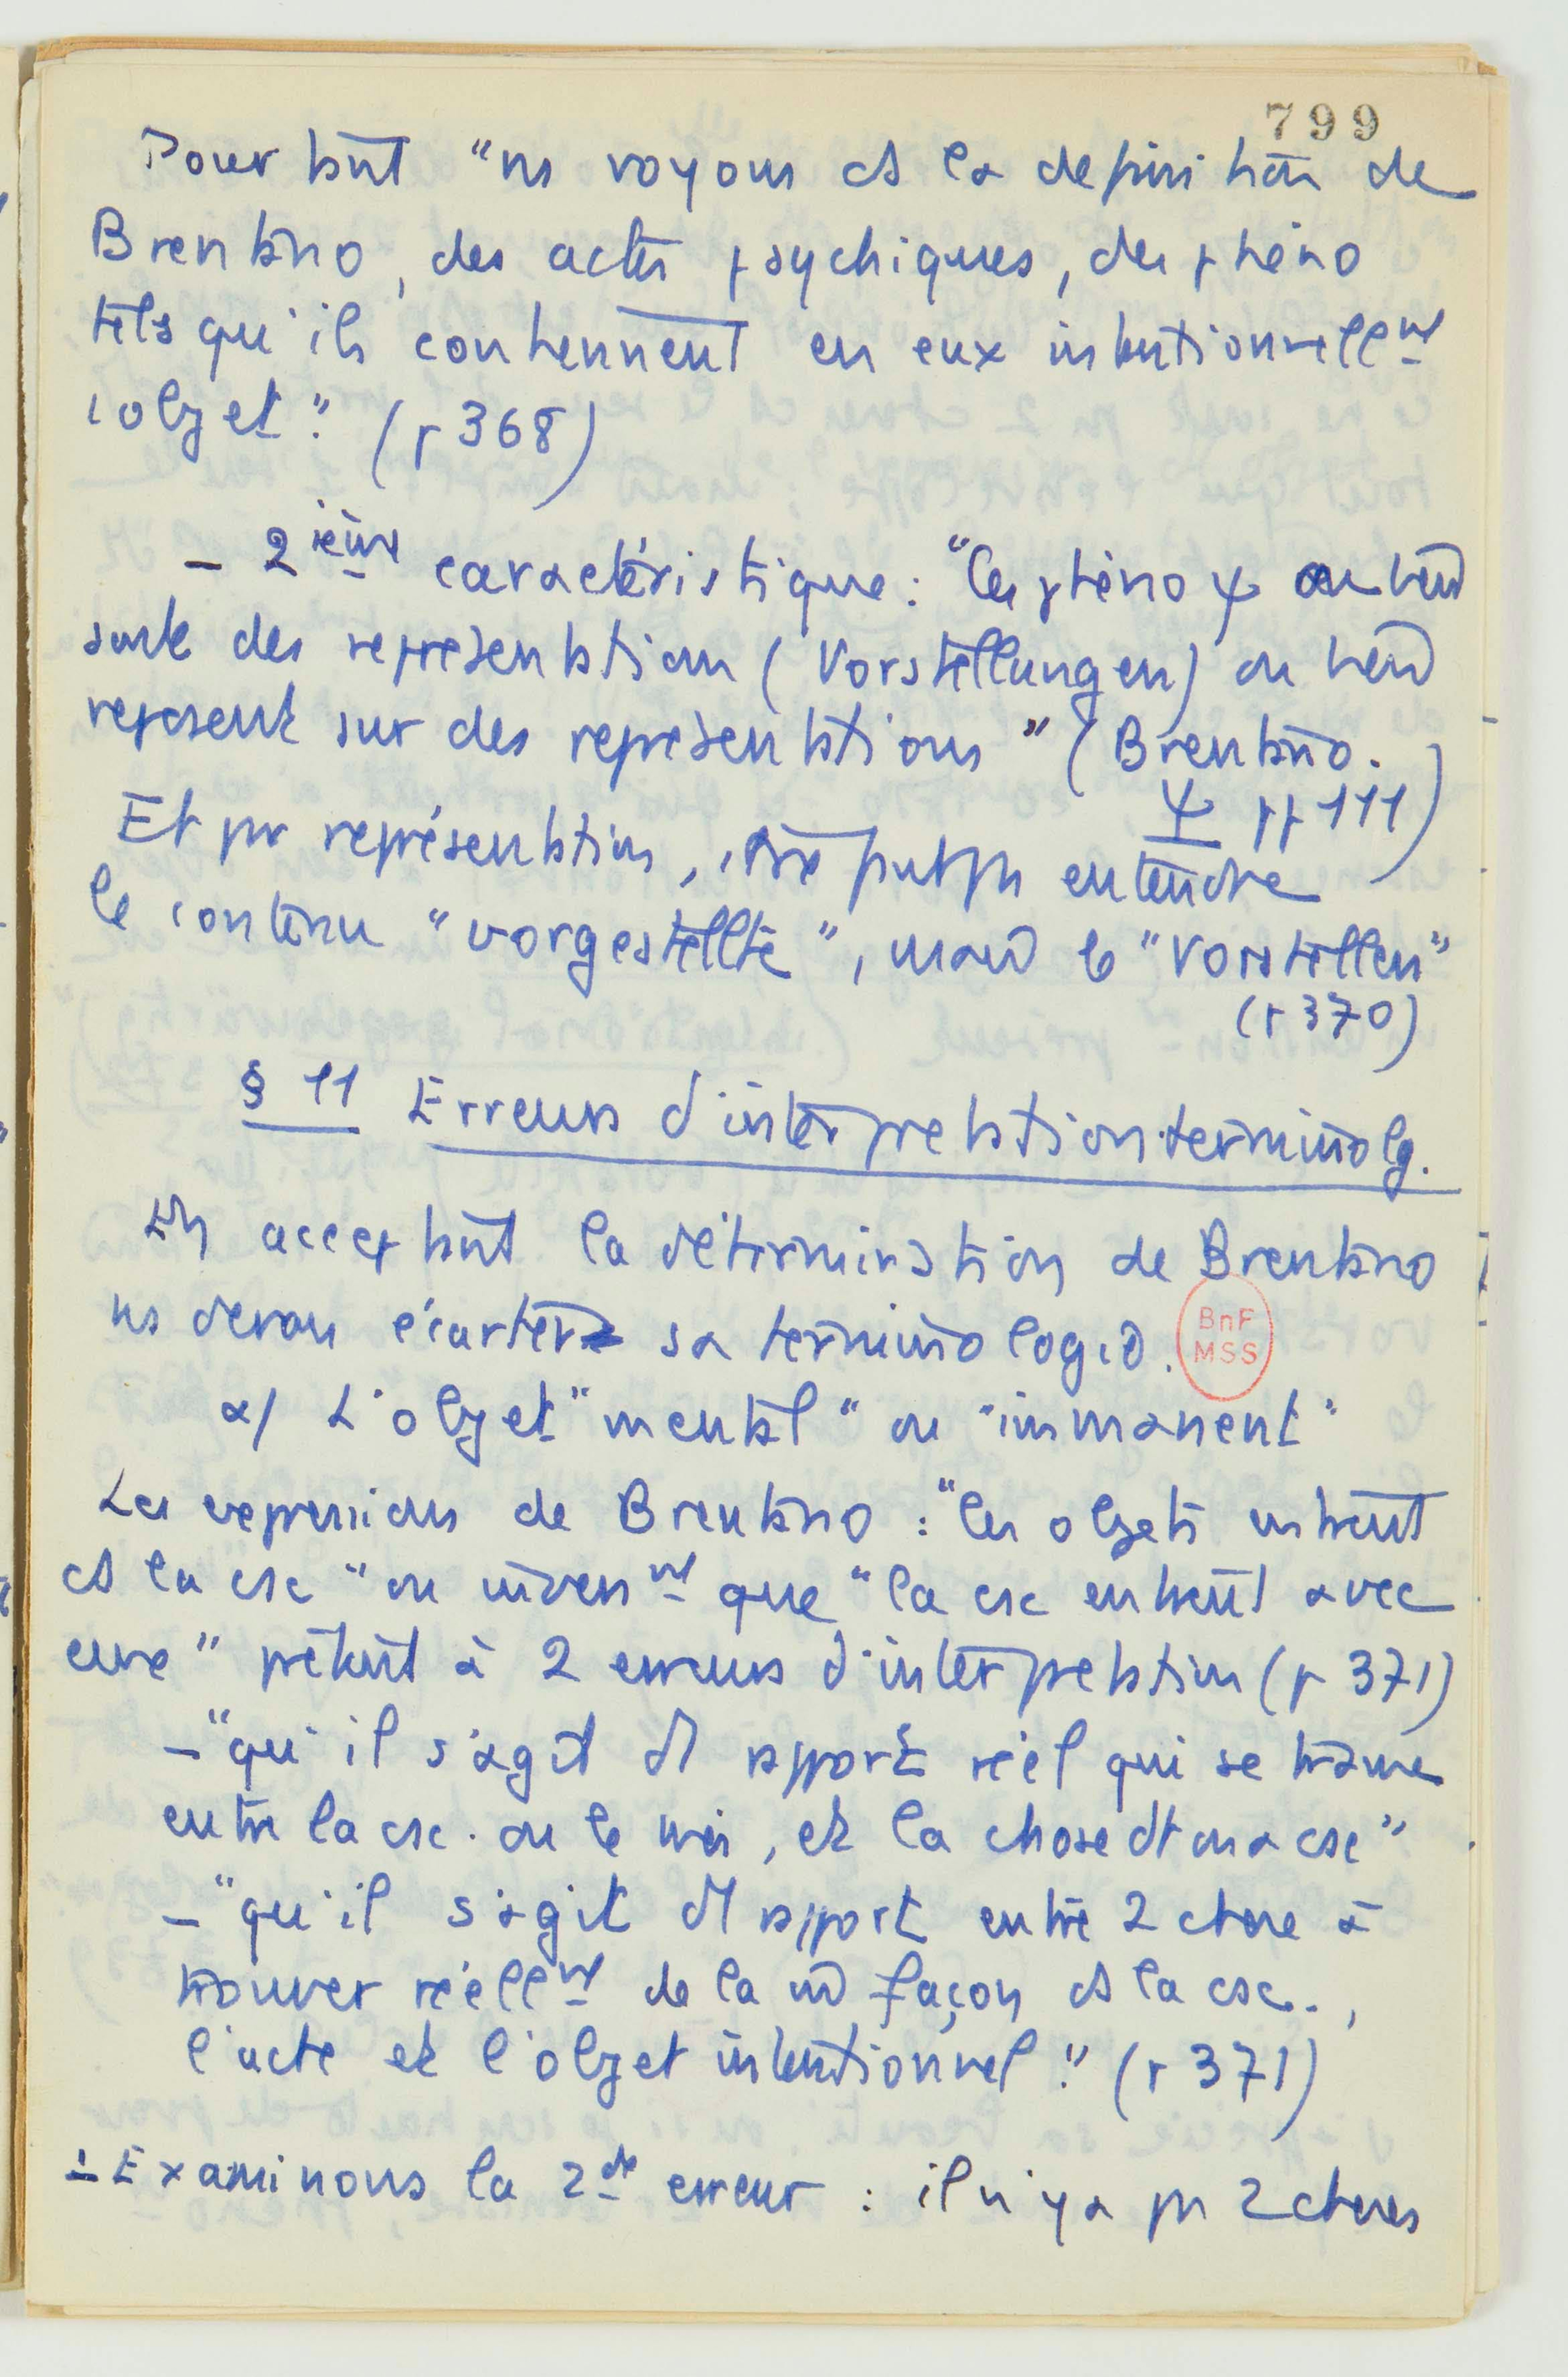 799
Pourtant "ns voyons ds la definition de
Brentano, des actes psychiques, des phéno
tels qu'ils contiennent en eux intentionnellmt
l'objet". (p 368)
- 2ième caractéristique : "les phéno ψ ou bien
sont des représentations (Vorstellungen) ou bien
reposent sur des représentations" (Brentano.
Ψ pp 111)
Et par représentation, faut pas entendre
le contenu "vorgestellte", mais le "Vorstellen"
(p 370)
§ 11 Erreurs d'interprétation terminolg.
En acceptant la détermination de Brentano
ns devons écarter sa terminologie.
BnF
MSS
α/ L'objet "mental" ou "immanent"
Les expressions de Brentano : "les objets entrent
ds la csc" ou inversmt que "la csc entre avec
eux" prêtent à 2 erreurs d'interprétation (p 371)
- "qu'il s'agit d'1 rapport réel qui se trouve
entre la csc. ou le moi, et la chose dt on a csc"
- "qu'il s'agit d'1 rapport entre 2 choses à
trouver réellmt de la m façon ds la csc.,
l'acte et l'objet intentionnel". (p 371)
- Examinons la 2de erreur : il n'y a pas 2 choses